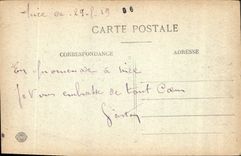 Nice le 29-5-19
06
CARTE POSTALE
CORRESPONDANCE
ADRESSE
En promenade à Nice
je vous embrasse de tout Cœur
Gaston